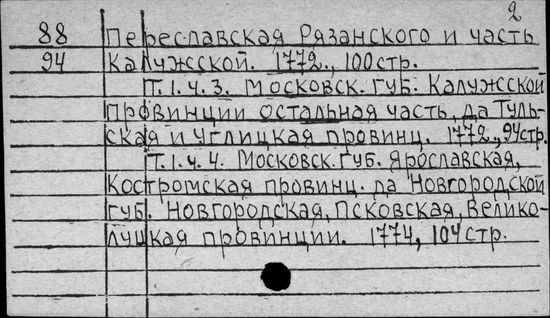 2
88 Переславская Рязанского и часть
94 Калужсской. 1772., 100 стр.
Т.1.ч.3. Московск. губ. Калужсской
провинции остальная часть, да Туль-
ская и Углицкая провинц. 1772., 94 стр.
Т.1.ч.4. Московск. губ. Ярославская,
Костромская провинц. да Новгородской
губ. Новгородская, Псковская, Велико-
луцкая провинции. 1774, 104 стр.